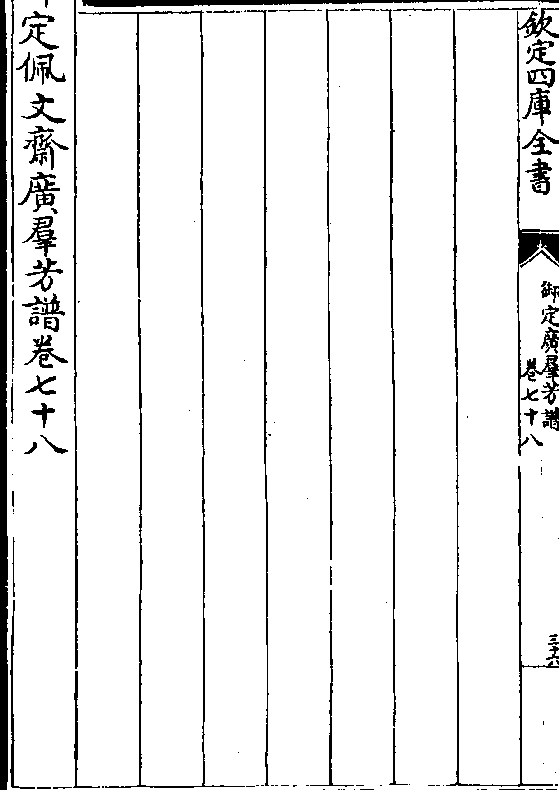 欽定四庫全書
御定廣羣芳譜
卷七十八
三十六
定佩文齋廣羣芳譜卷七十八